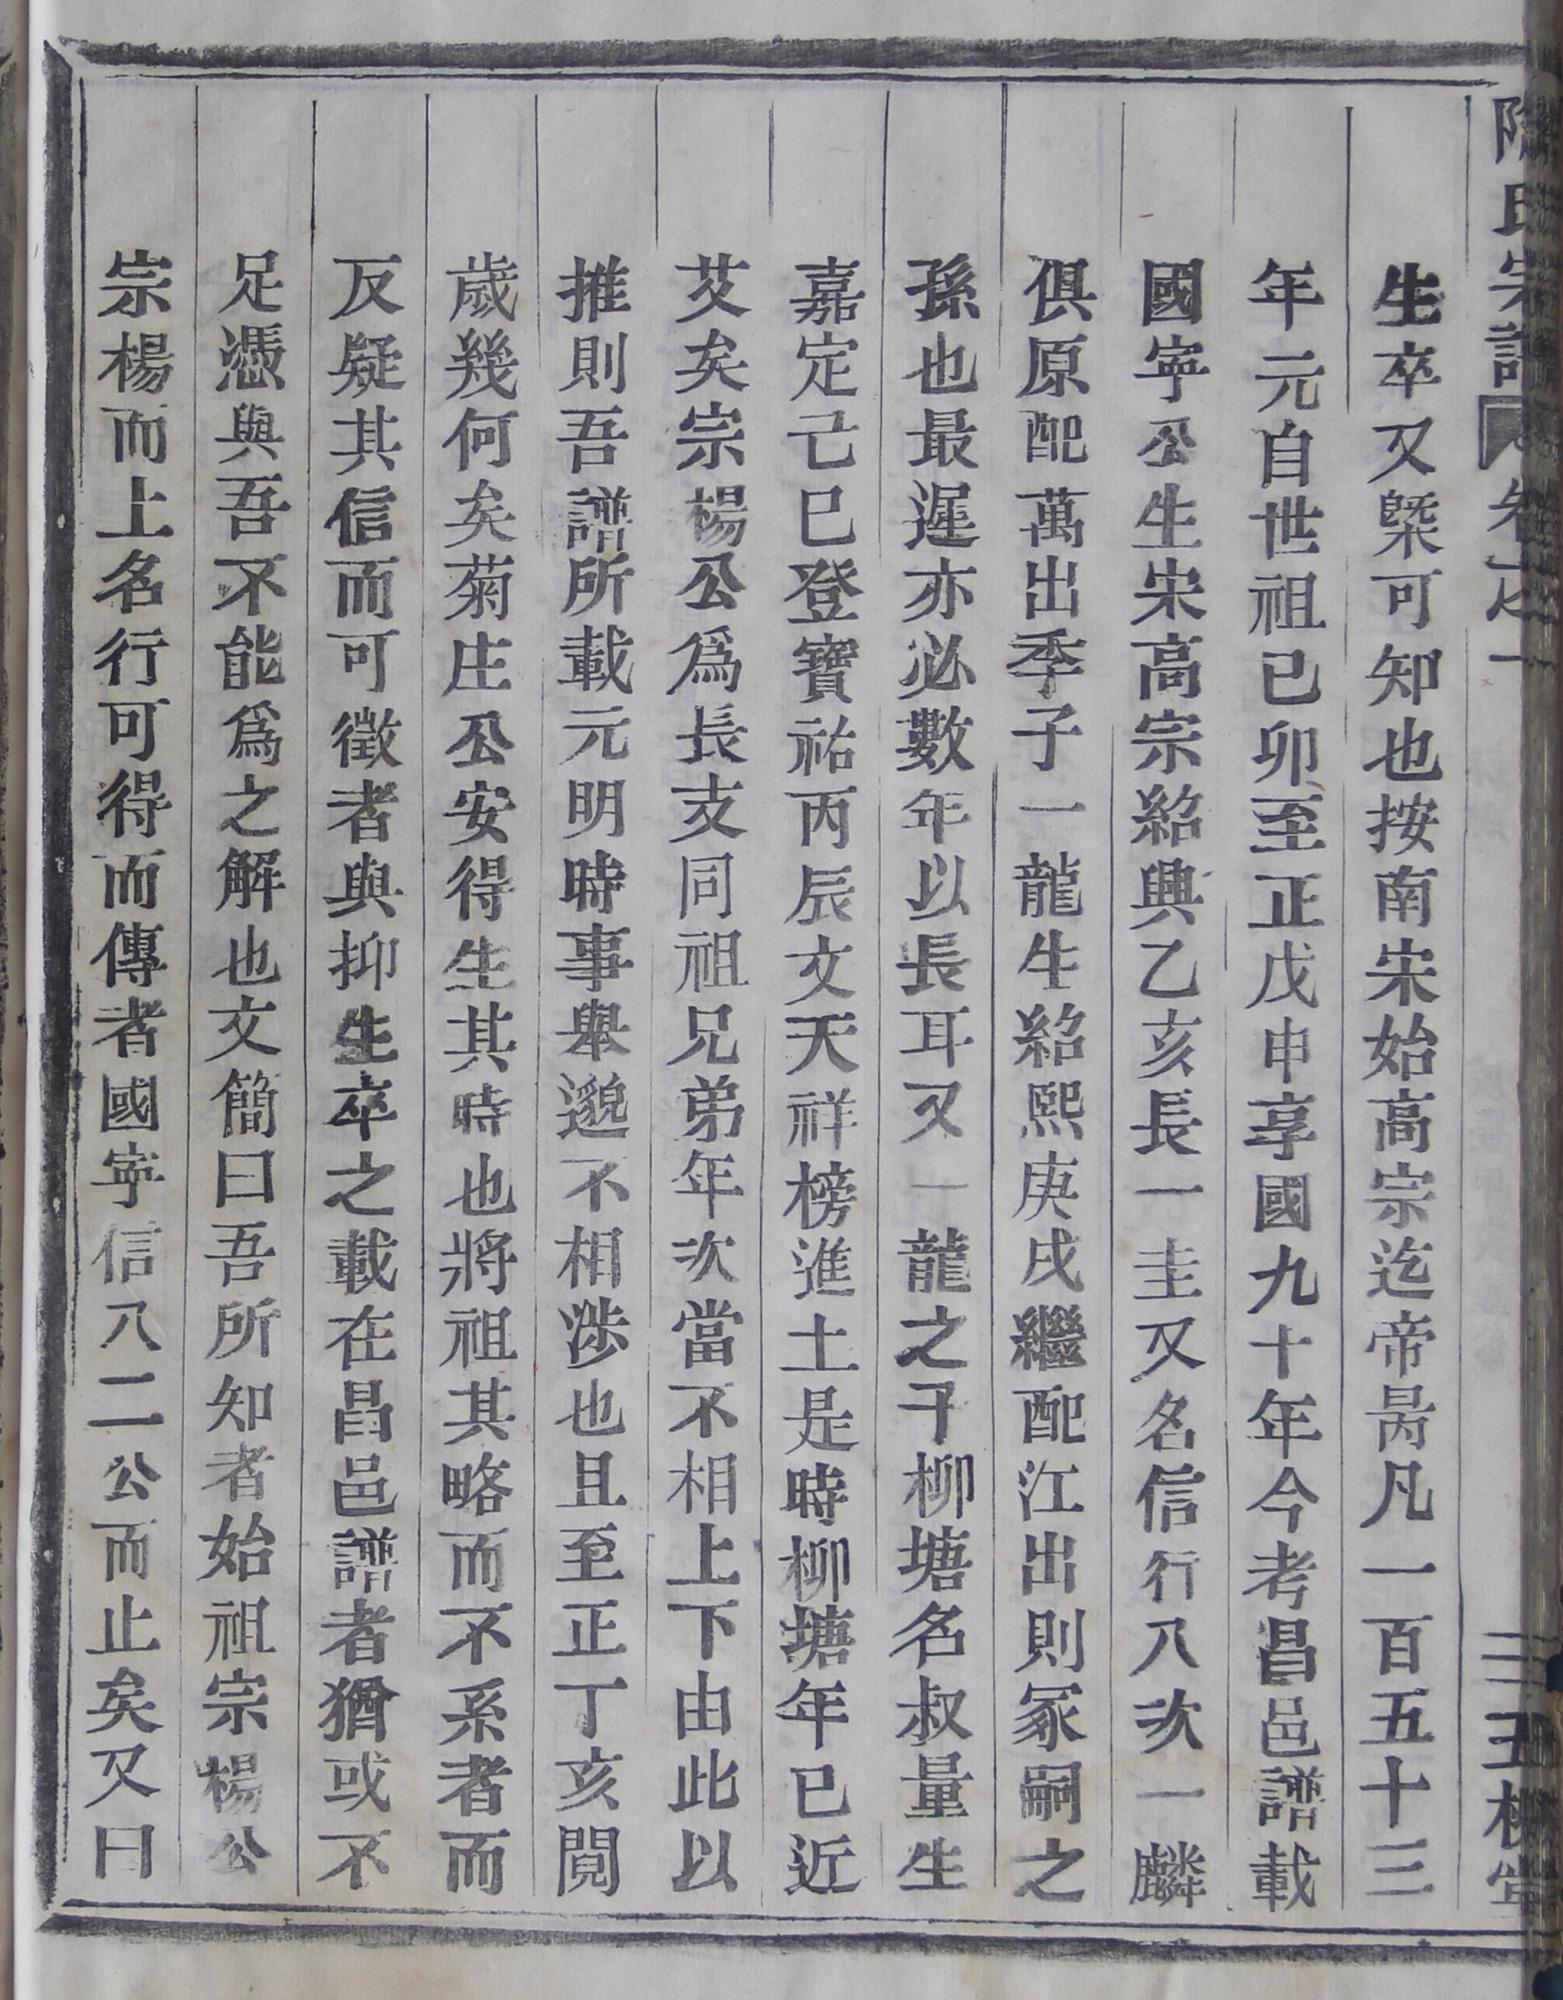 氏宗譜 卷之一
五柳堂
生卒又槩可知也按南宋始高宗迄帝昺凡一百五十三
年元自世祖已卯至正戊申享國九十年今考昌邑譜載
國寧公生宋高宗紹興乙亥長一圭又名信行八次一麟
俱原配萬出季子一龍生紹熙庚戌繼配江出則冢嗣之
孫也最遲亦必數年以長耳又一龍之子柳塘名叔量生
嘉定己巳登寶祐丙辰文天祥榜進士是時柳塘年已近
艾矣宗楊公爲長支同祖兄弟年次當不相上下由此以
推則吾譜所載元明時事舉邈不相涉也且至正丁亥閱
歲幾何矣菊庄公安得生其時也將祖其略而不系者而
反疑其信而可徵者與抑生卒之載在昌邑譜者猶或不
足憑與吾不能爲之解也文簡曰吾所知者始祖宗楊公
宗楊而上名行可得而傳者國寧信八二公而止矣又曰